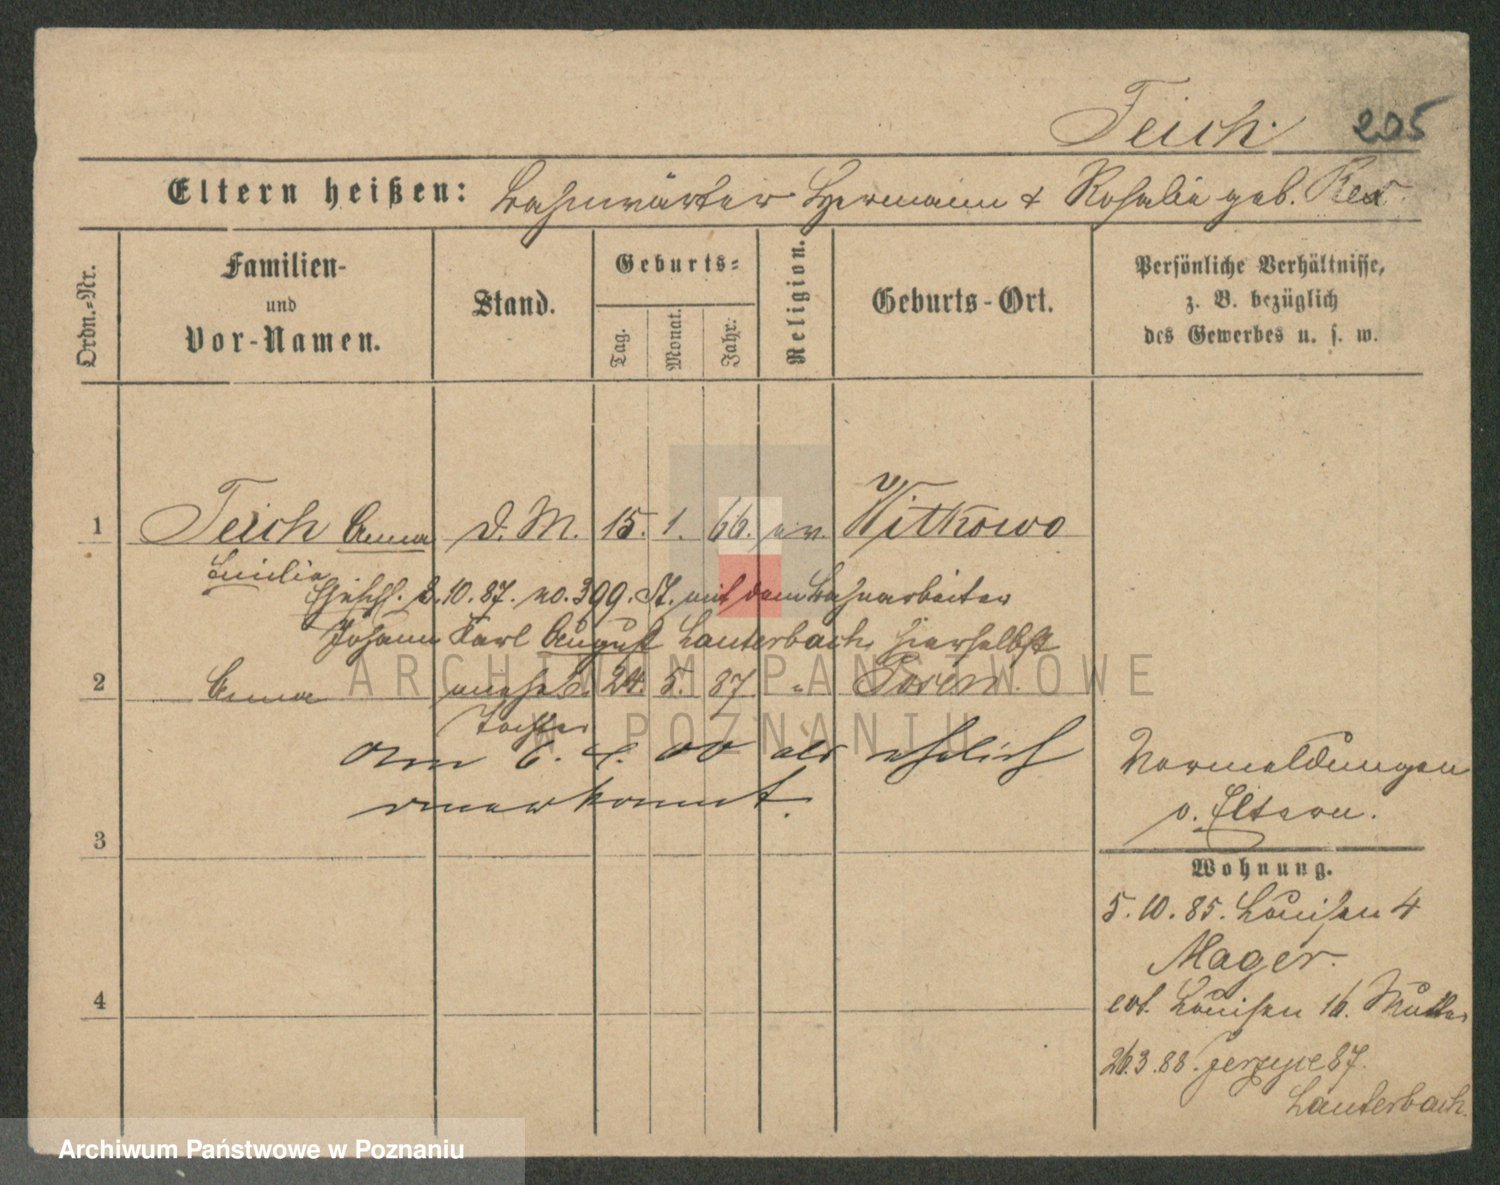 Teich. 205
Eltern heißen: Bahnwärter Hermann & Rosalie geb. Rex.
Ordn.-Nr.
Familien-
und
Vor-Namen.
Stand.
Geburts-
Tag.
Monat.
Jahr.
Religion.
Geburts-Ort.
Persönliche Verhältnisse,
z. B. bezüglich
des Gewerbes u. s. w.
1 Teich Anna d. M. 15. 1. 66. ev. Witkowo
Emilie
10. 87. no. 399. St. mit dem Bahnarbeiter
Johann Karl August Lauterbach hierselbst
2 Anna unehel. 24. 5. 87 " Posen.
Tochter
Am 6. 00 als ehelich
anerkannt.
3
4
Vormeldungen
v. Eltern.
Wohnung.
5. 10. 85. Louisen 4
Mager.
eod. Louisen 16. Mutter
26.3.88. 87.
Lauterbach.
ARCHIWUM PAŃSTWOWE
W POZNANIU
Archiwum Państwowe w Poznaniu